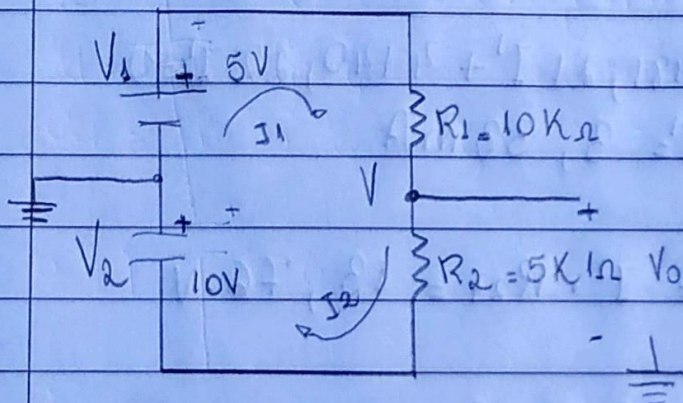 V1 + 5V
I1
R1=10KΩ
V
+
V2 + 10V
I2
R2=5KΩ Vo
-